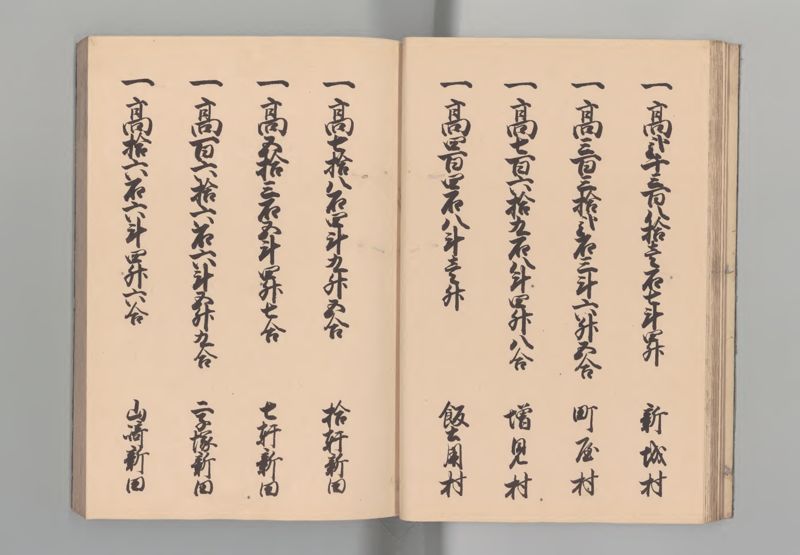 一高弐千三百八拾壱石七斗四升 新城村
一高三百三拾弐石三斗六升五合 町屋村
一高七百六拾五石八斗四升八合 増見村
一高四百四石八斗壱升 飯土用村
一高七拾八石四斗九升五合 拾軒新田
一高五拾三石五斗四升七合 七軒新田
一高百六拾六石六斗五升九合 二子塚新田
一高拾六石六斗四升六合 山崎新田